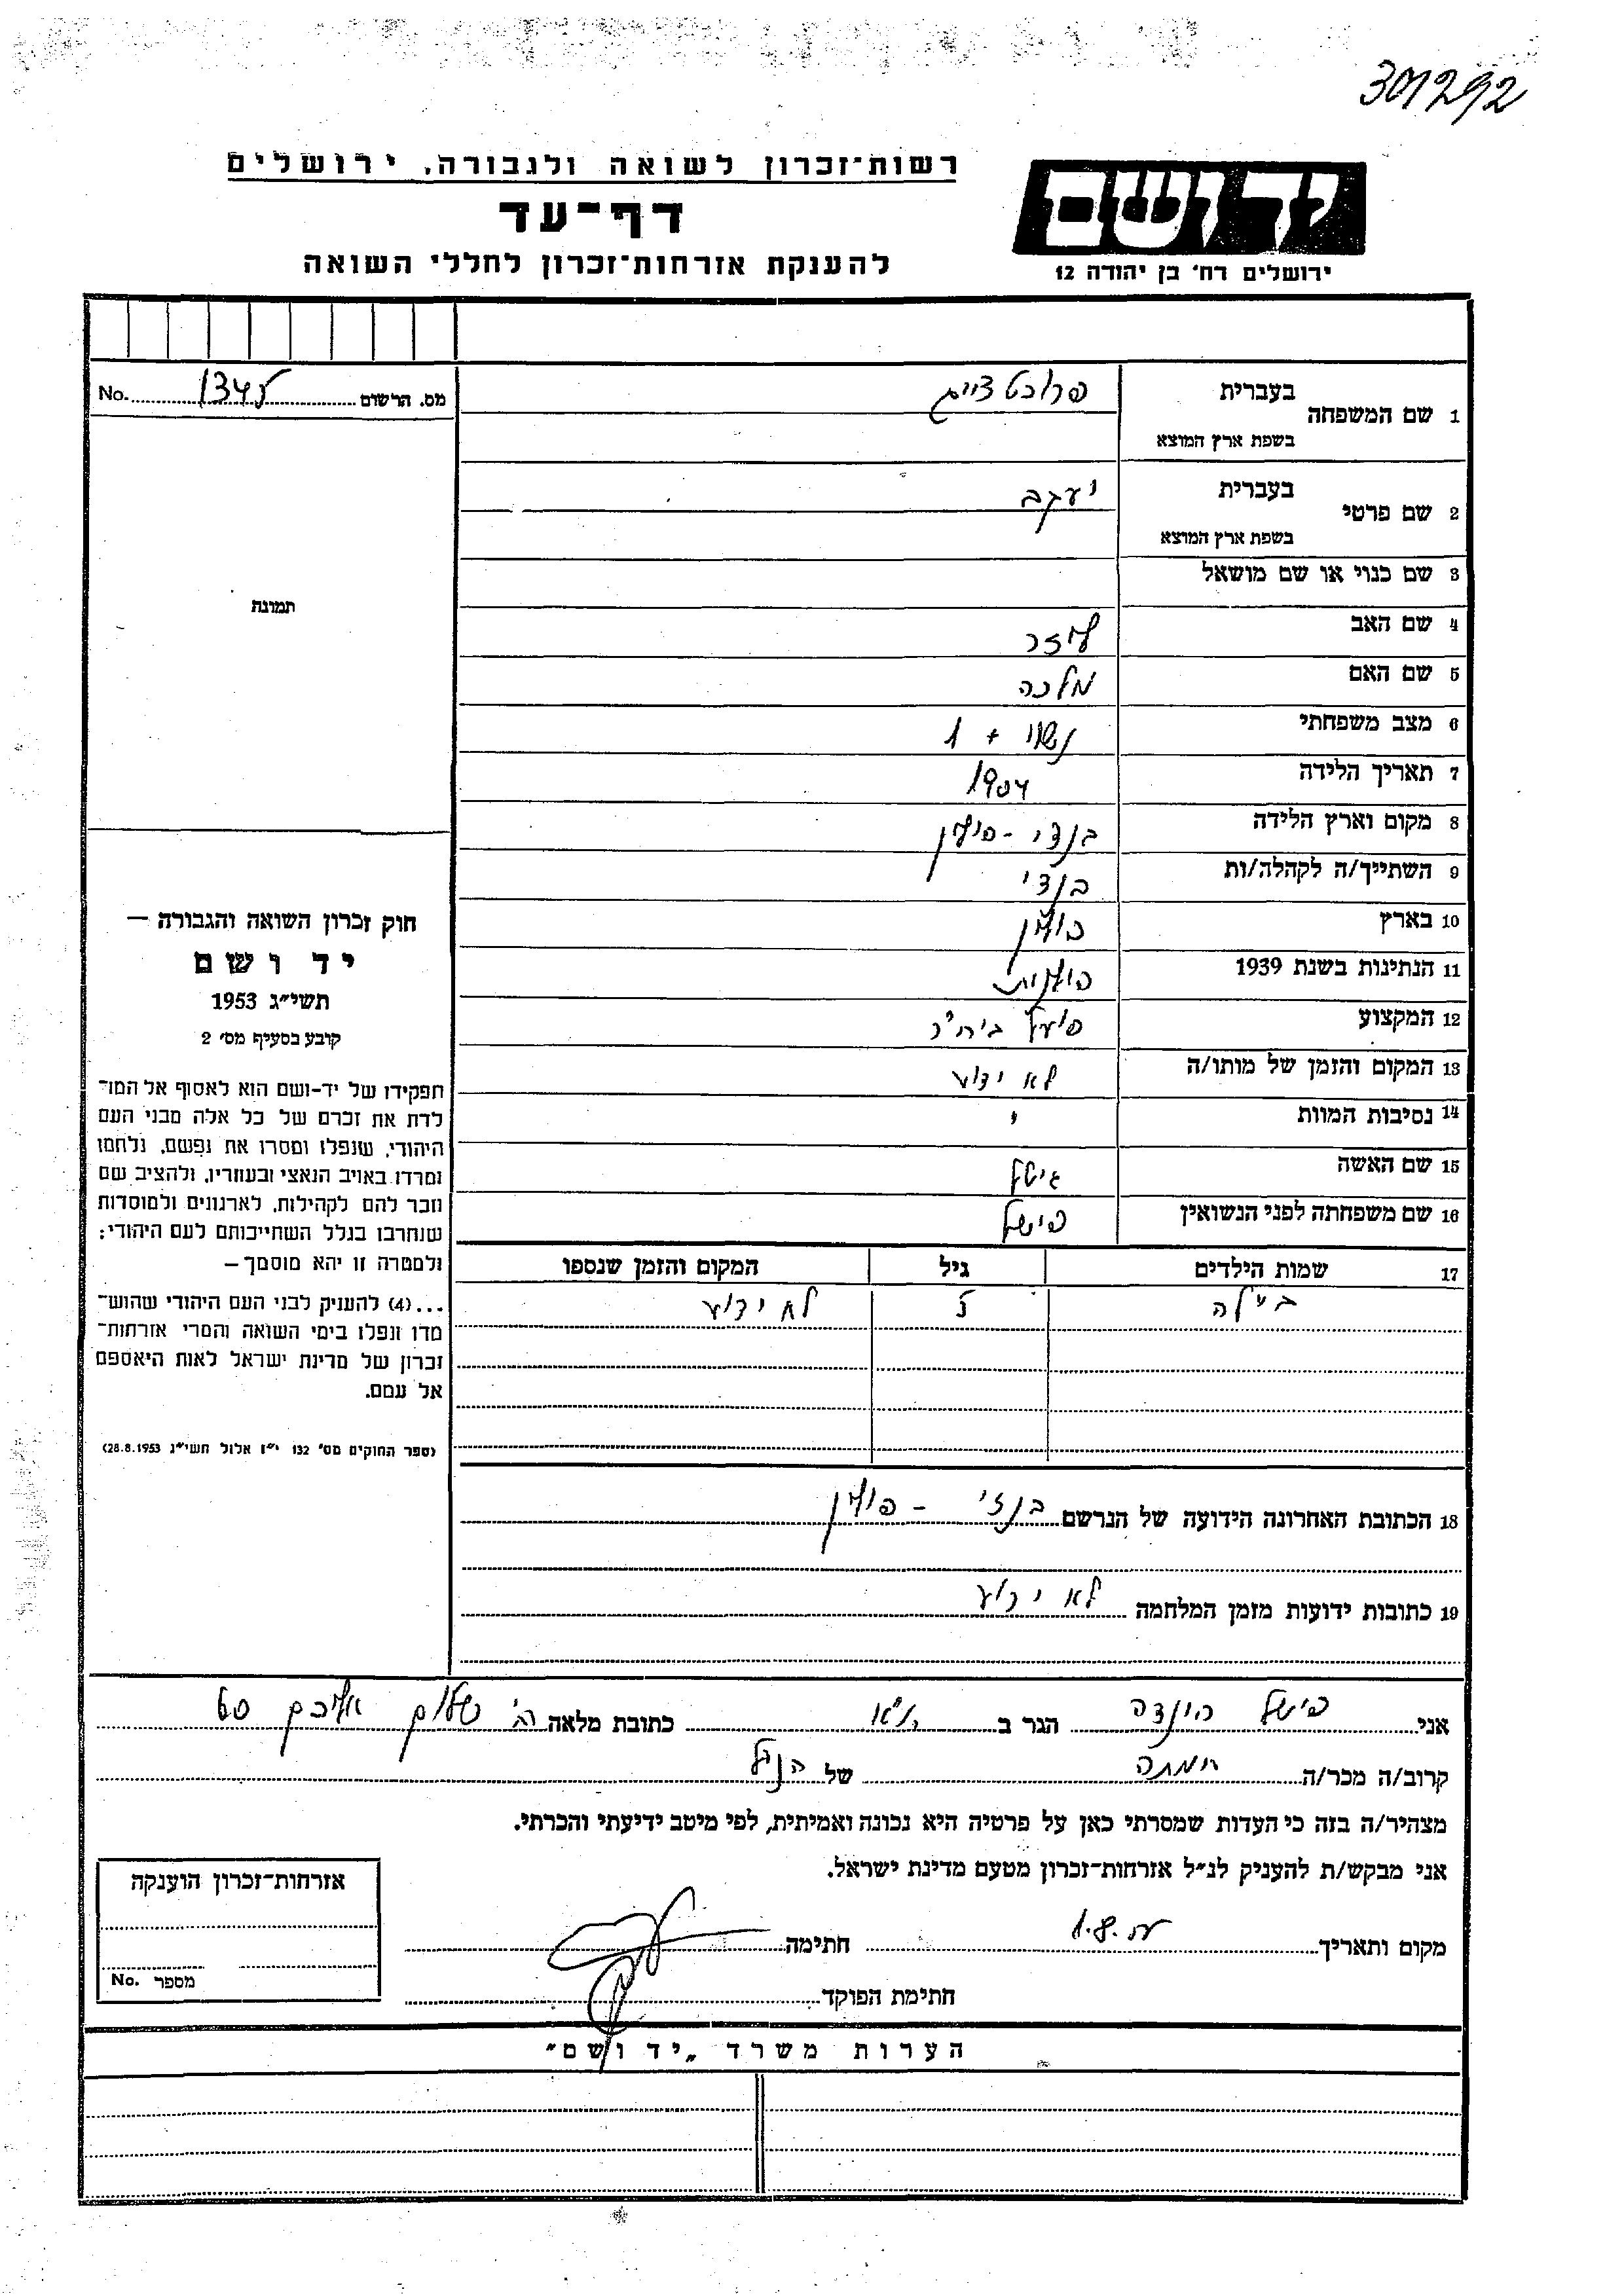 301292
רשות־זכרון לשואה ולגבורה, ירושלים
דף־עד
להענקת אזרחות־זכרון לחללי השואה
יד ושם
ירושלים רח' בן יהודה 12
No. מס. הרשום
1 שם המשפחה
בעברית
בשפת ארץ המוצא
2 שם פרטי
בעברית יעקב
בשפת ארץ המוצא
3 שם כנוי או שם מושאל
4 שם האב
5 שם האם מלכה
6 מצב משפחתי נשוי + 1
7 תאריך הלידה 1904
8 מקום וארץ הלידה בנדז'י - פולין
9 השתייך/ה לקהלה/ות בנדז'י
10 בארץ פולין
11 הנתינות בשנת 1939 פולנית
12 המקצוע פועל ביח"ר
13 המקום והזמן של מותו/ה לא ידוע
14 נסיבות המוות "
15 שם האשה גיטל
16 שם משפחתה לפני הנשואין פישל
17 שמות הילדים גיל המקום והזמן שנספו
ביילה 5 לא ידוע
18 הכתובת האחרונה הידועה של הנרשם בנדז'י - פולין
19 כתובות ידועות מזמן המלחמה לא ידוע
תמונה
חוק זכרון השואה והגבורה —
יד ושם
תשי"ג 1953
קובע בסעיף מס' 2
תפקידו של יד-ושם הוא לאסוף אל המו־
לדת את זכרם של כל אלה מבני העם
היהודי, שנפלו ומסרו את נפשם, נלחמו
ומרדו באויב הנאצי ובעוזריו, ולהציב שם
וזכר להם לקהילות, לארגונים ולמוסדות
שנחרבו בגלל השתייכותם לעם היהודי;
ולמטרה זו יהא מוסמך —
...(4) להעניק לבני העם היהודי שהוש־
מדו ונפלו בימי השואה והמרי אזרחות־
זכרון של מדינת ישראל לאות היאספם
אל עמם.
(ספר החוקים מס' 132 י"ז אלול תשי"ג 28.8.1953)
אני פישל הינדה הגר ב ת"א כתובת מלאה רח' שלום עליכם 60
קרוב/ה מכר/ה של הנ"ל
מצהיר/ה בזה כי העדות שמסרתי כאן על פרטיה היא נכונה ואמיתית, לפי מיטב ידיעתי והכרתי.
אני מבקש/ת להעניק לנ"ל אזרחות-זכרון מטעם מדינת ישראל.
מקום ותאריך 1.8. חתימה
חתימת הפוקד
אזרחות־זכרון הוענקה
No. מספר
הערות משרד „יד ושם"